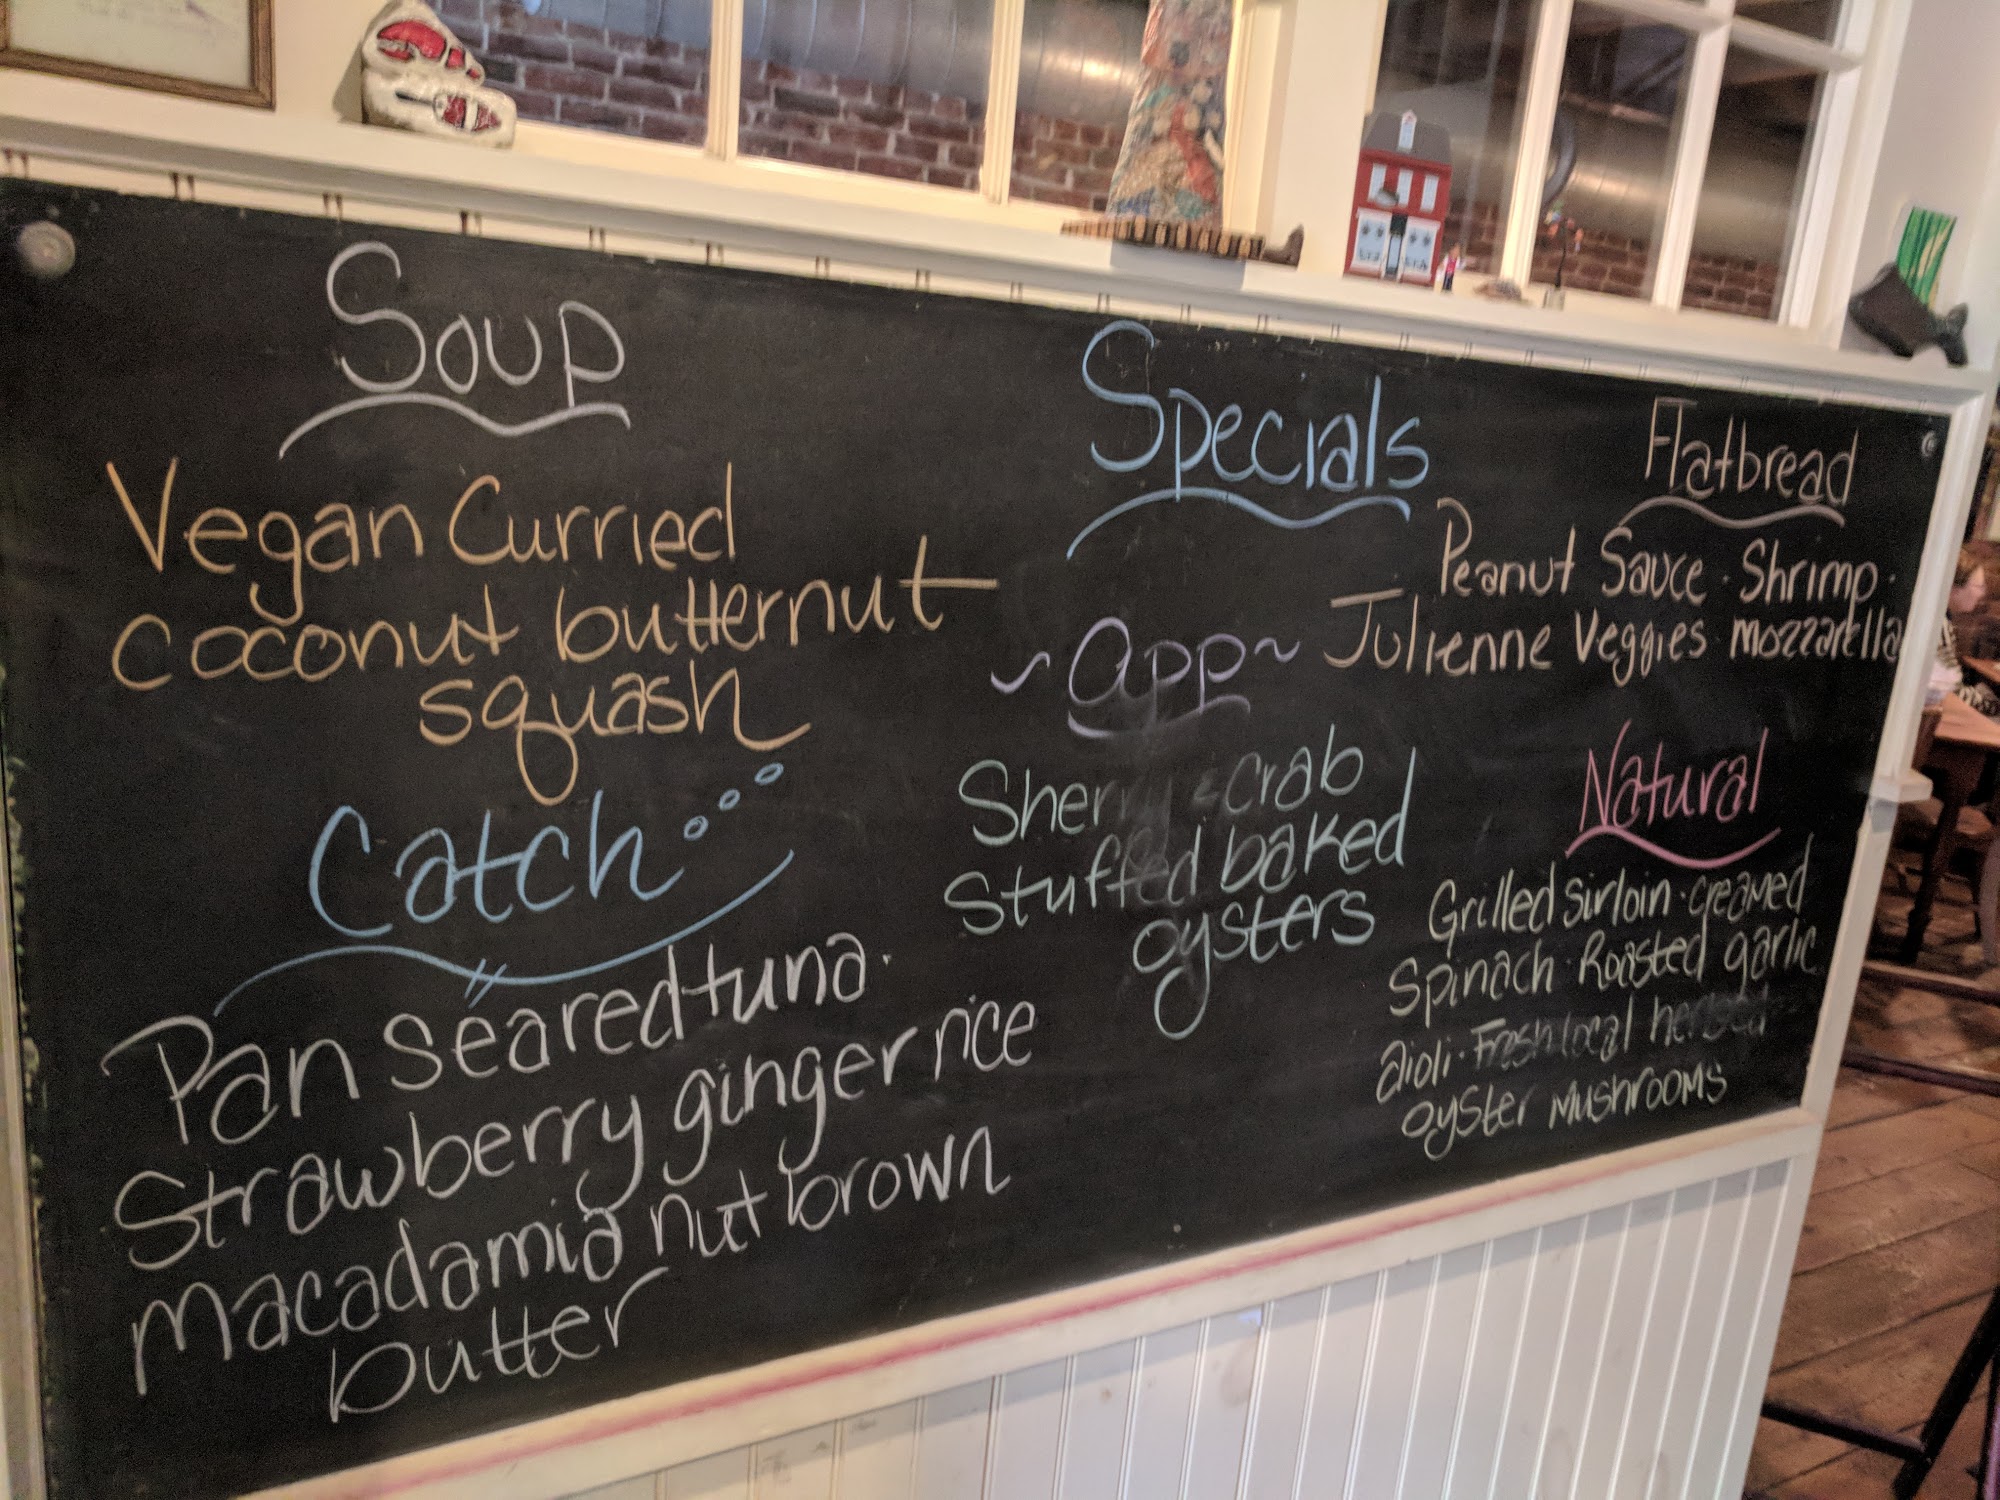 Soup
Vegan Curried
coconut butternut
squash
Catch...
Pan seared tuna.
Strawberry ginger rice
macadamia nut brown
butter
Specials
~ App ~
Sherry & crab
Stuffed baked
oysters
Flatbread
Peanut Sauce · Shrimp ·
Julienne Veggies · mozzarella
Natural
Grilled sirloin · creamed
Spinach · Roasted garlic
aioli · Fresh local
oyster mushrooms